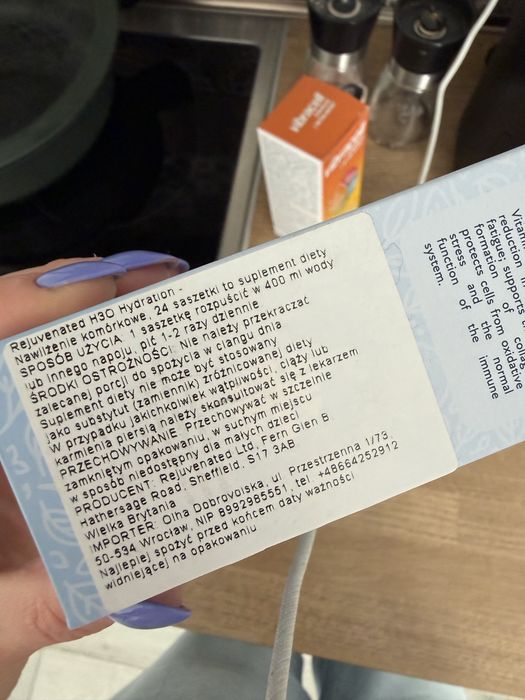 vibracell
Rejuvenated H3O Hydration -
Nawilżenie komórkowe, 24 saszetki to suplement diety
SPOSÓB UŻYCIA: 1 saszetkę rozpuścić w 400 ml wody
lub innego napoju, pić 1-2 razy dziennie
ŚRODKI OSTROŻNOŚCI: Nie należy przekraczać
zalecanej porcji do spożycia w ciangu dnia
Suplement diety nie może być stosowany
jako substytut (zamiennik) zróżnicowanej diety
W przypadku jakichkolwiek wątpliwości, ciąży lub
karmienia piersią należy skonsultować się z lekarzem
PRZECHOWYWANIE: Przechowywać w szczelnie
zamkniętym opakowaniu, w suchym miejscu
w sposób niedostępny dla małych dzieci
PRODUCENT: Rejuvenated Ltd, Fern Glen B
Hathersage Road, Sheffield, S17 3AB
Wielka Brytania
IMPORTER: Olha Dobrovolska, ul. Przestrzenna 1/73
50-534 Wrocław, NIP 8992985551, tel. +48664252912
Najlepiej spożyć przed końcem daty ważności
widniejącej na opakowaniu
fatigue; supports
formation of collag
protects cells from oxidative
stress and the normal
function of the immune
system.